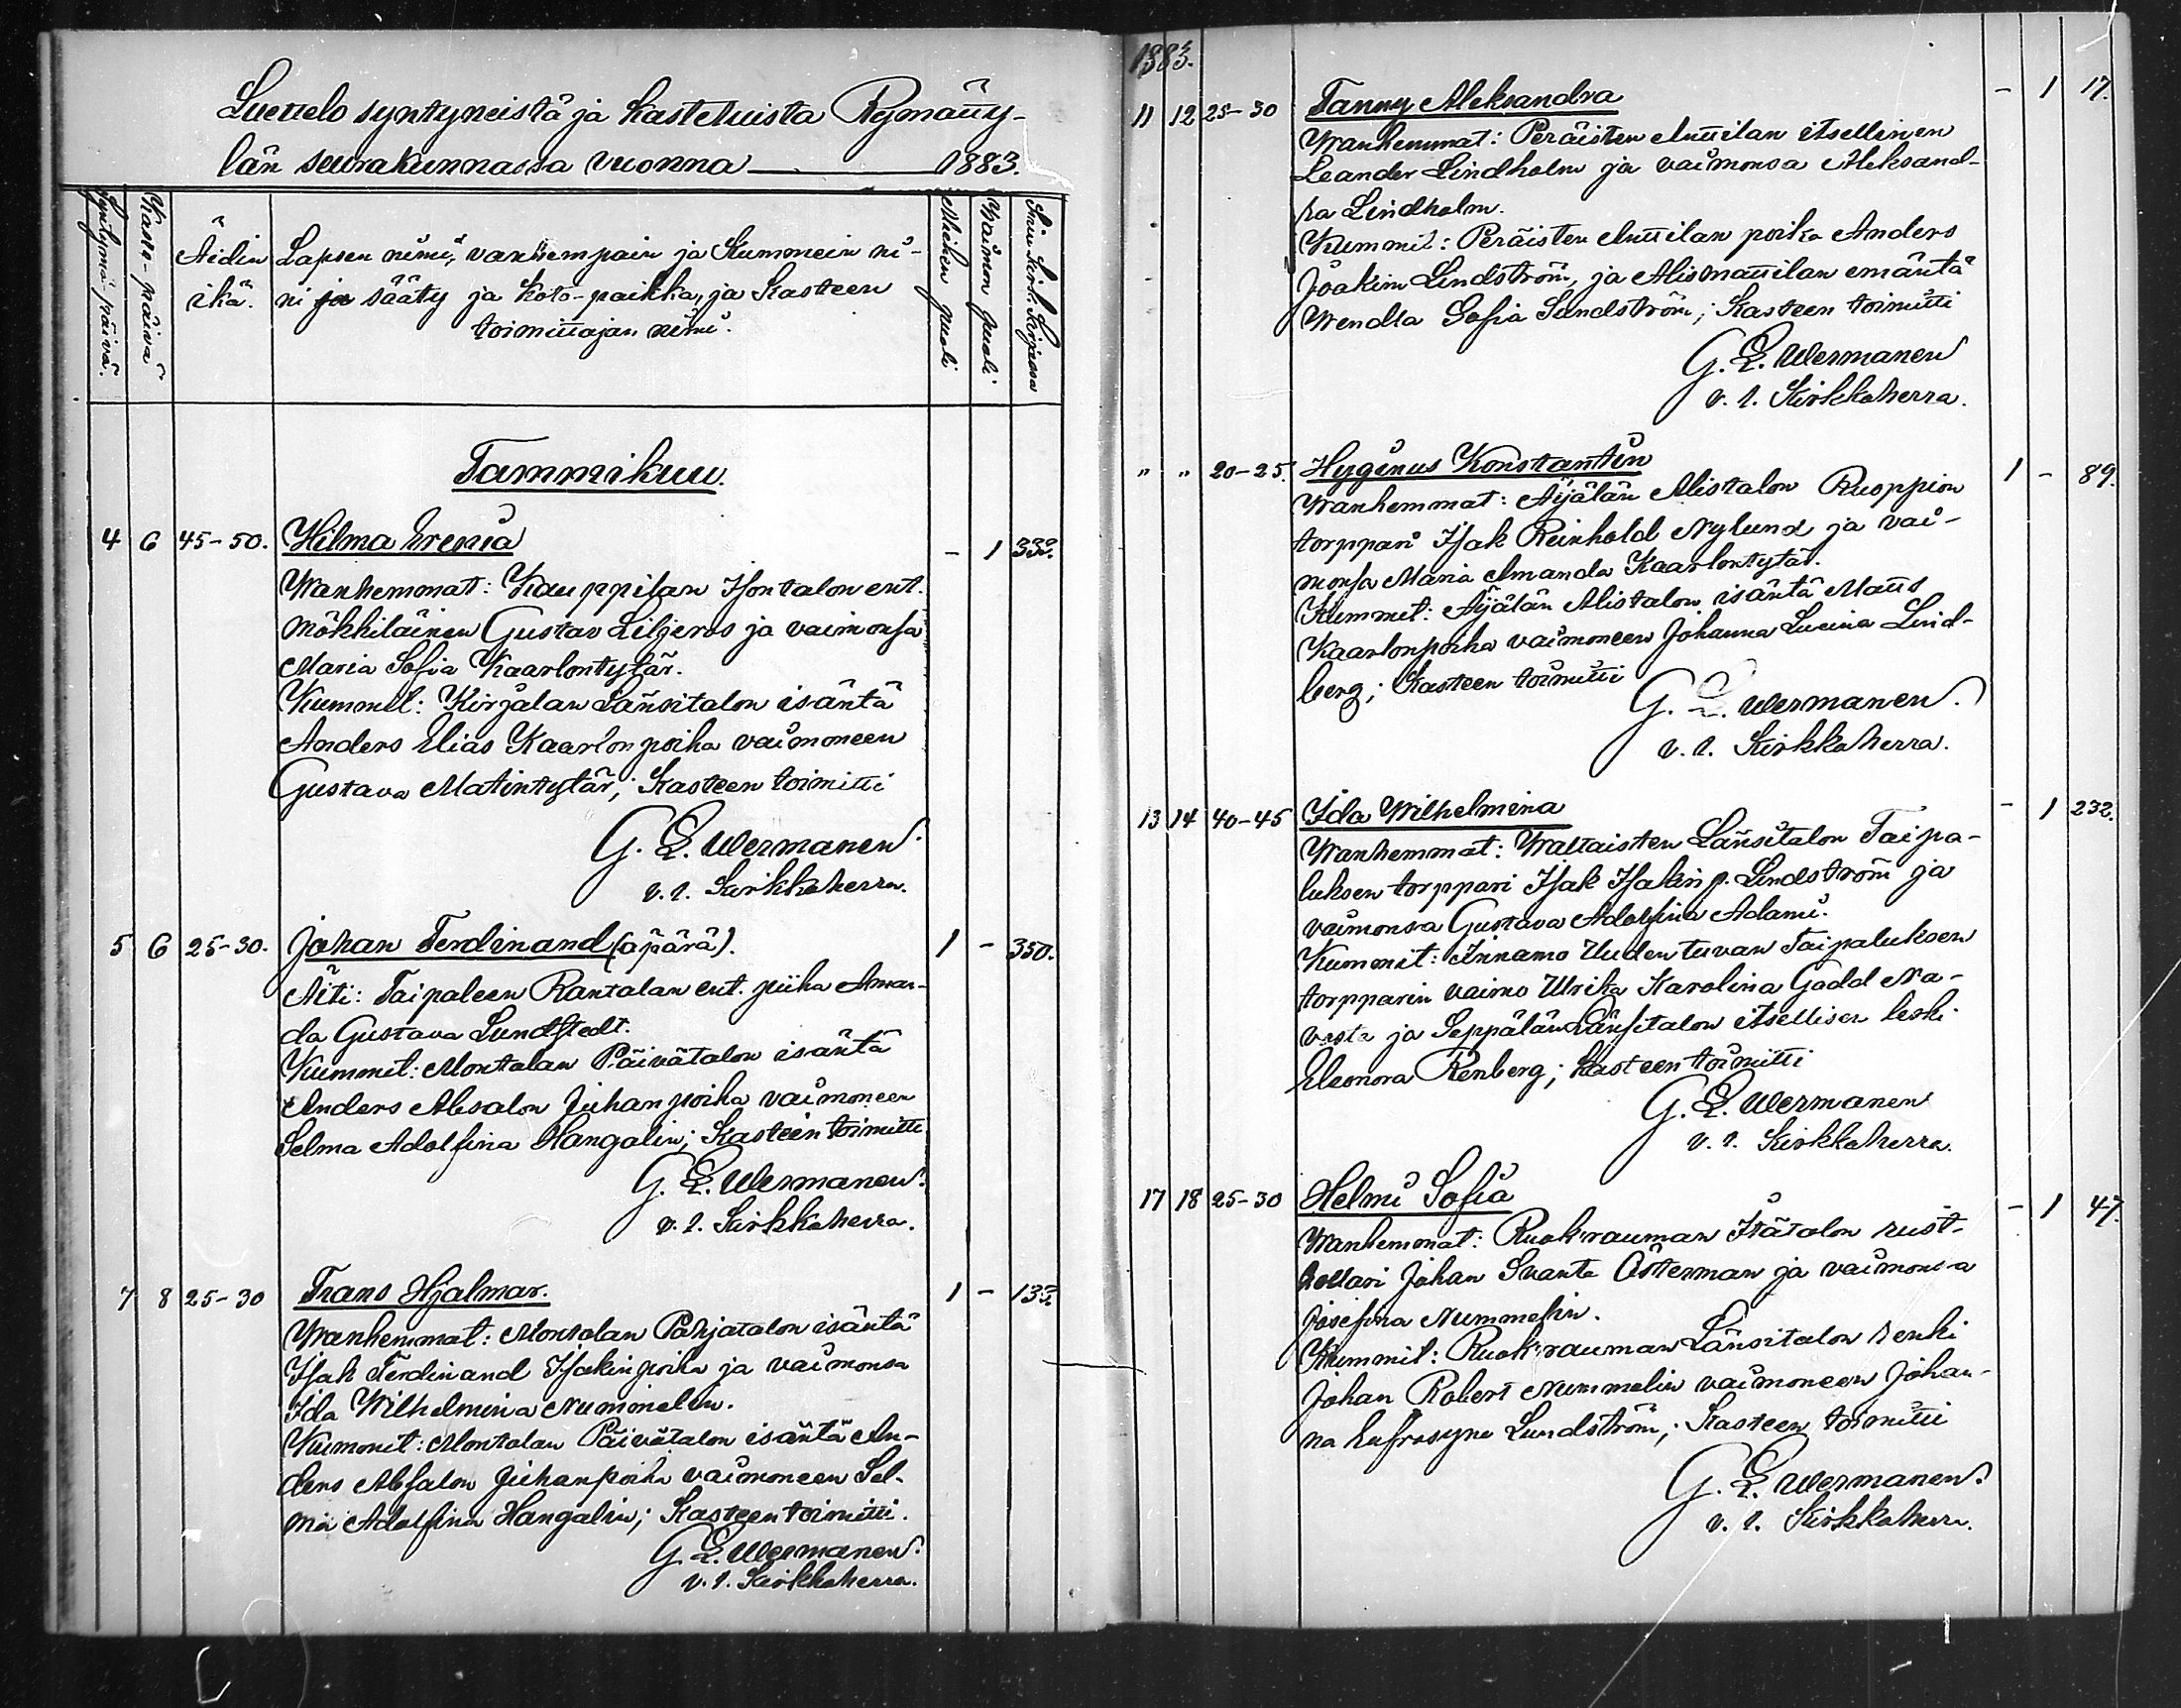 Luettelo syntyneistä ja kastetuista Rymätty-
län seurakunnassa vuonna 1883.
Syntymä päivä.
Kaste-päivä
Äidin
ikä.
Lapsen nimi, vanhempain ja Kummein ni-
ni ja sääty ja koto-paikka, ja Kasteen
toimittajan nimi.
Miehen puoli
Vaimon puoli
Tammikuu.
4 6 45-50. Hilma Irenia - 1 332.
Wanhemmat: Kauppilan Isontalon ent.
Mökkiläinen Gustav Liljeros ja vaimonsa
Maria Sofia Kaarlontytär.
Kummit: Kirjalan Länsitalon isäntä
Anders Elias Kaarlonpoika vaimoneen
Gustava Matintytär; Kasteen toimitti
G. E. Wermanen
v. t. Kirkkoherra.
5 6 25-30. Johan Ferdinand (äpärä). 1 - 350.
Äiti: Taipaleen Rantalan ent. piika Aman-
da Gustava Lundstedt.
Kummit: Montalan Päivätalon isäntä
Anders Absalon Juhanpoika vaimoneen
Selma Adolfina Hangelin; Kasteen toimitti
G. E. Wermanen.
v. t. Kirkkoherra.
7 8 25-30 Frans Hjalmar. 1 - 135.
Wanhemmat: Montalan Pohjatalon isäntä
Isak Ferdinand Isakinpoika ja vaimonsa
Ida Wilhelmina Nummelin.
Kummit: Montalan Päivätalon isäntä An-
ders Absalon Juhanpoika vaimoneen Sel-
ma Adolfina Hangelin; Kasteen toimitti.
G. E. Wermanen.
v. t. Kirkkoherra.
1883.
11 12 25-30 Fanny Aleksandra - 1 17.
Wanhemmat: Peräisten Anttilan itsellinen
Leander Lindholm ja vaimonsa Aleksand-
ra Lindholm.
Kummit: Peräisten Anttilan poika Anders
Joakim Lindström, ja Alismattilan emäntä
Wendla Sofia Sundström; Kasteen toimitti
G. E. Wermanen
v. t. Kirkkoherra.
" " 20-25. Hyginus Konstantin 1 - 89.
Wanhemmat: Äijälän Alistalon Ruoppion
torppari Isak Reinhold Nylund ja vai-
monsa Maria Amanda Kaarlontytär.
Kummit: Äijälän Alistalon isäntä Matts
Kaarlonpoika vaimoneen Johanna Lucina Lind-
berg; Kasteen toimitti
G. E. Wermanen.
v. t. Kirkkoherra.
13 14 40-45 Ida Wilhelmina - 1 232.
Wanhemmat: Wattaisten Länsitalon Taipa-
luksen torppari Isak Isakin p. Lindström ja
vaimonsa Gustava Adolfina Adami.
Kummit: Innamo Uudentuvan Taipaluksen
torpparin vaimo Ulrika Karolina Gadd Na-
vasta ja Seppälän Länsitalon itsellisen leski
Eleonora Renberg; Kasteen toimitti
G. E. Wermanen
v. t. Kirkkoherra.
17 18 25-30 Helmi Sofia - 1 47.
Wanhemmat: Ruokorauman Itätalon rust-
hollari Johan Svante Österman ja vaimonsa
Josefina Nummelin.
Kummit: Ruokorauman Länsitalon renki
Johan Robert Nummelin vaimoneen Johan-
na Eufrosyne Lundström; Kasteen toimitti
G. E. Wermanen.
v. t. Kirkkoherra.